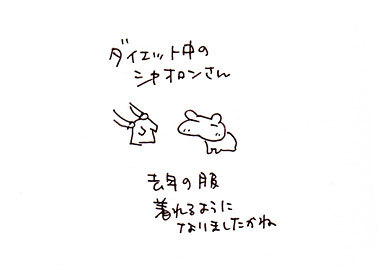 ダイエット中の
シャオロンさん
去年の服
着れるように
なりましたかね